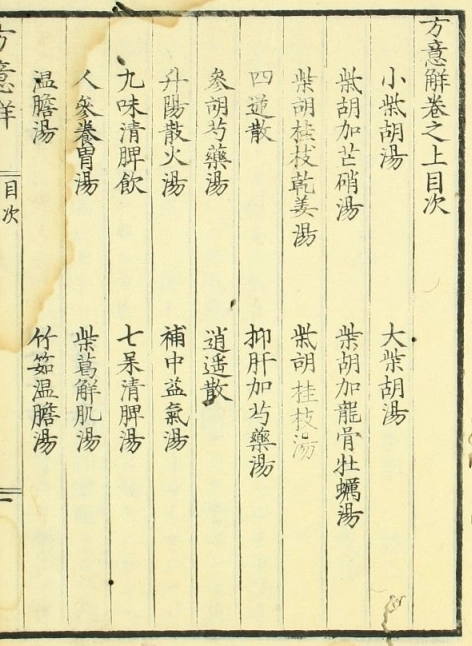 方意解卷之上目次
小柴胡湯　大柴胡湯
柴胡加芒硝湯　柴胡加龍骨牡蠣湯
柴胡桂枝乾姜湯　柴胡桂枝湯
四逆散　抑肝加芍藥湯
參胡芍藥湯　逍遥散
升陽散火湯　補中益氣湯
九味清脾飲　七果清脾湯
人參養胃湯　柴葛解肌湯
温膽湯　竹筎温膽湯
方意 目次